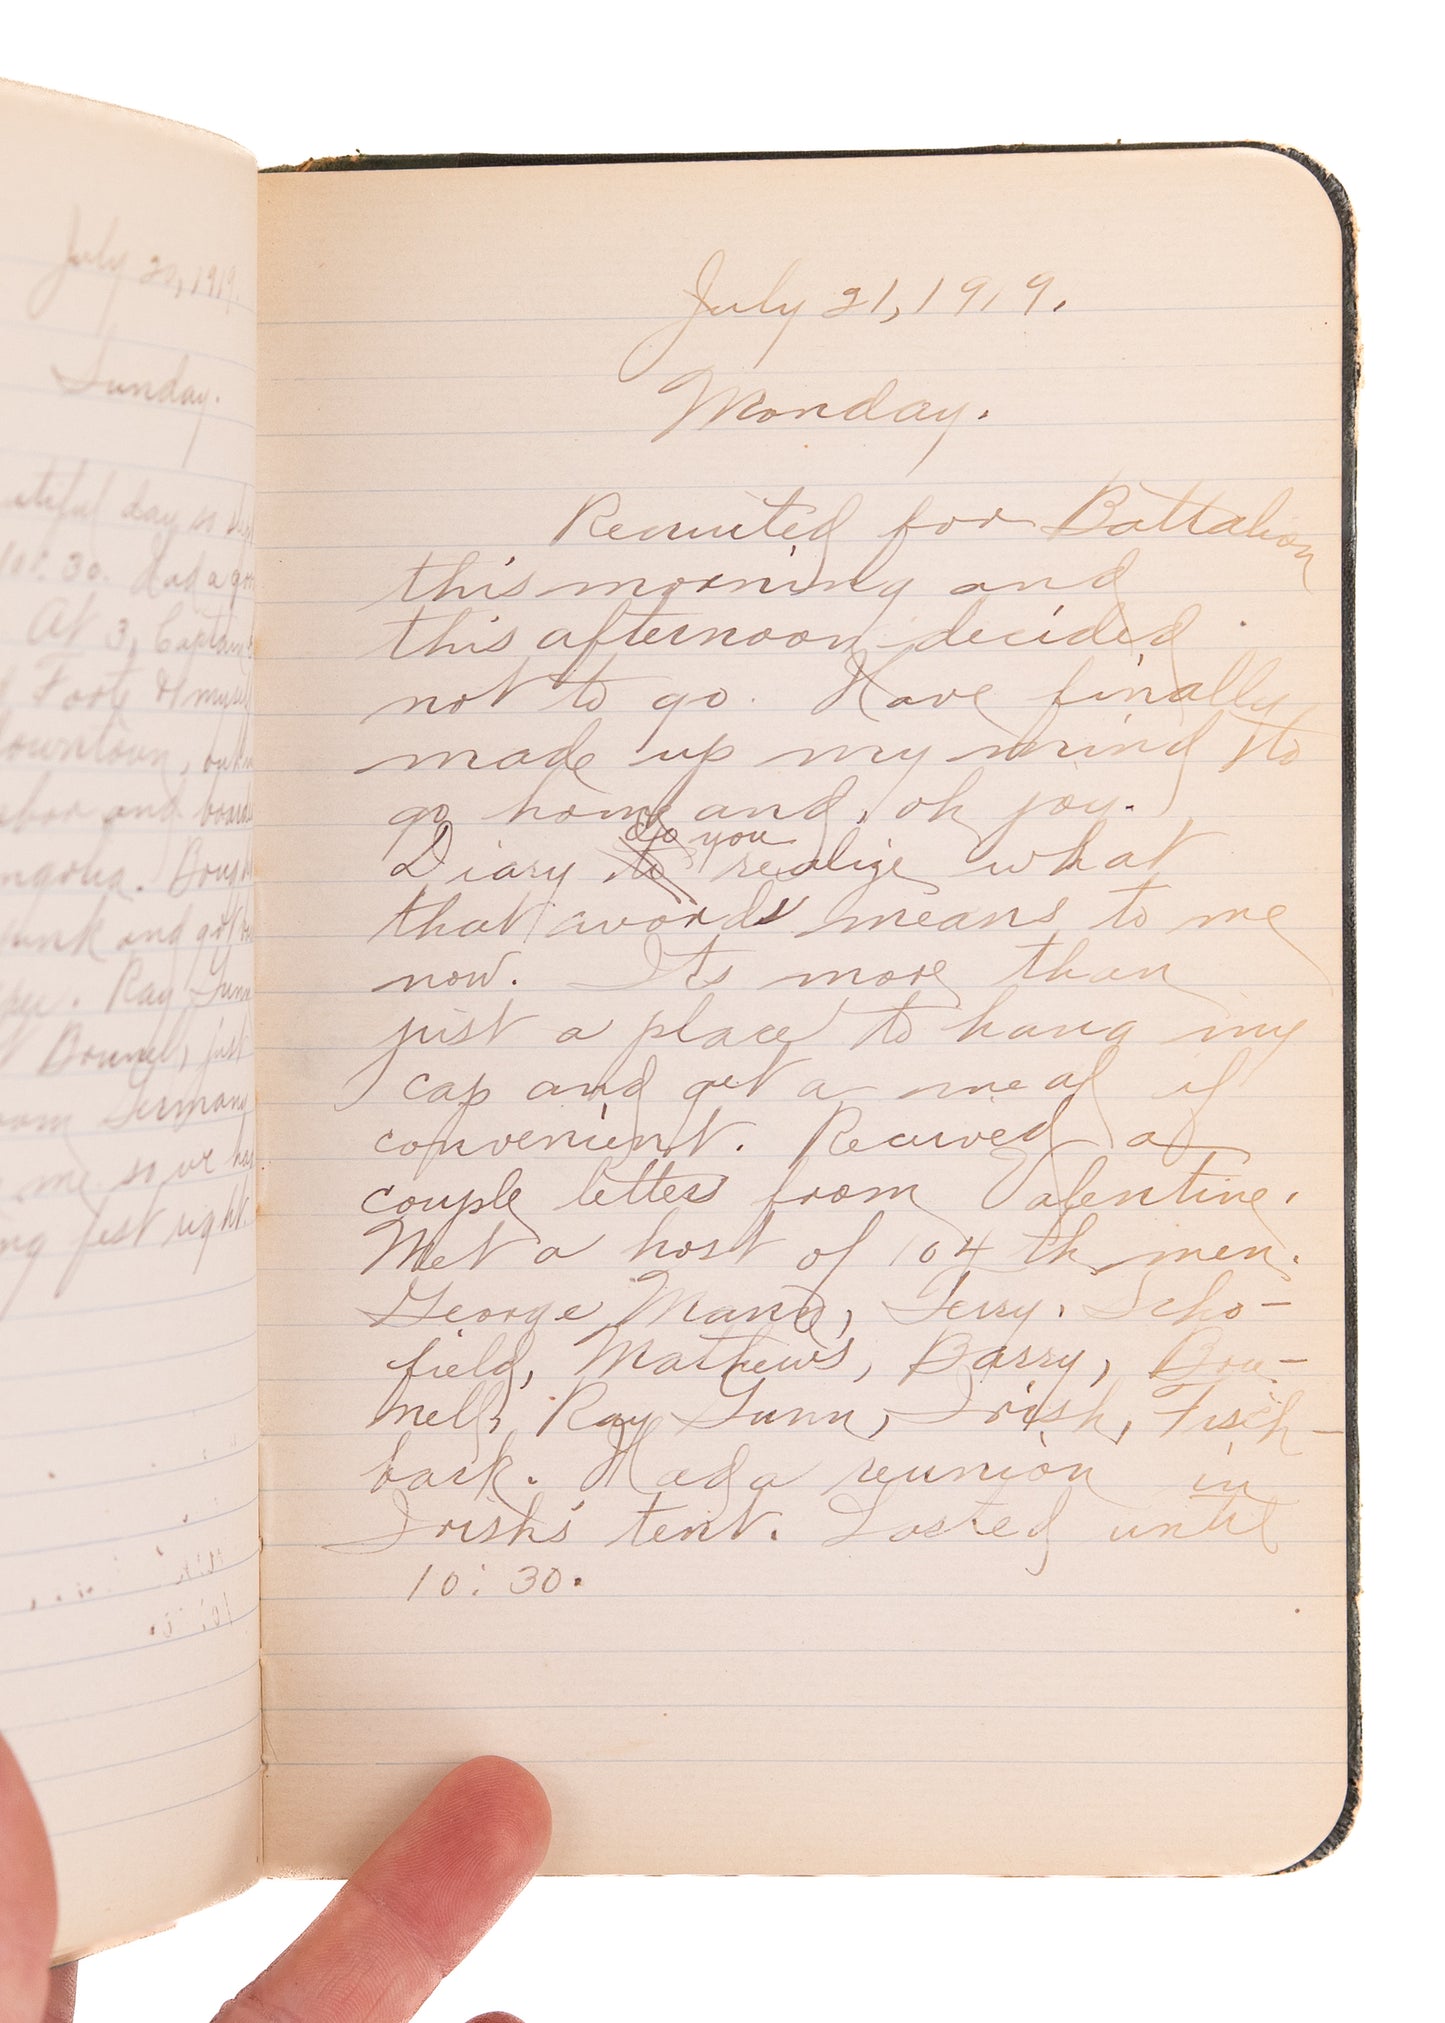 July 20, 1919.
Sunday.
10: 30. Had a
At 3, Captain
Foote &
downtown,
and
Boug
and got
Ray Gunn
Bonnel, just
Germany
me so we
fest right.
July 21, 1919.
Monday.
Recruited for Battalion
this morning and
this afternoon decided
not to go. Have finally
made up my mind to
go home and, oh joy.
do you
Diary to realize what
that words means to me
now. Its more than
just a place to hang my
cap and get a meal if
convenient. Recived a
couple letters from Valentine.
Met a host of 104 th men.
George Mann, Terry, Scho-
field, Mathews, Barry, Bon-
nell, Ray Gunn, Irish, Fisch-
back. Had a reunion in
Irish's tent. Lasted until
10: 30.